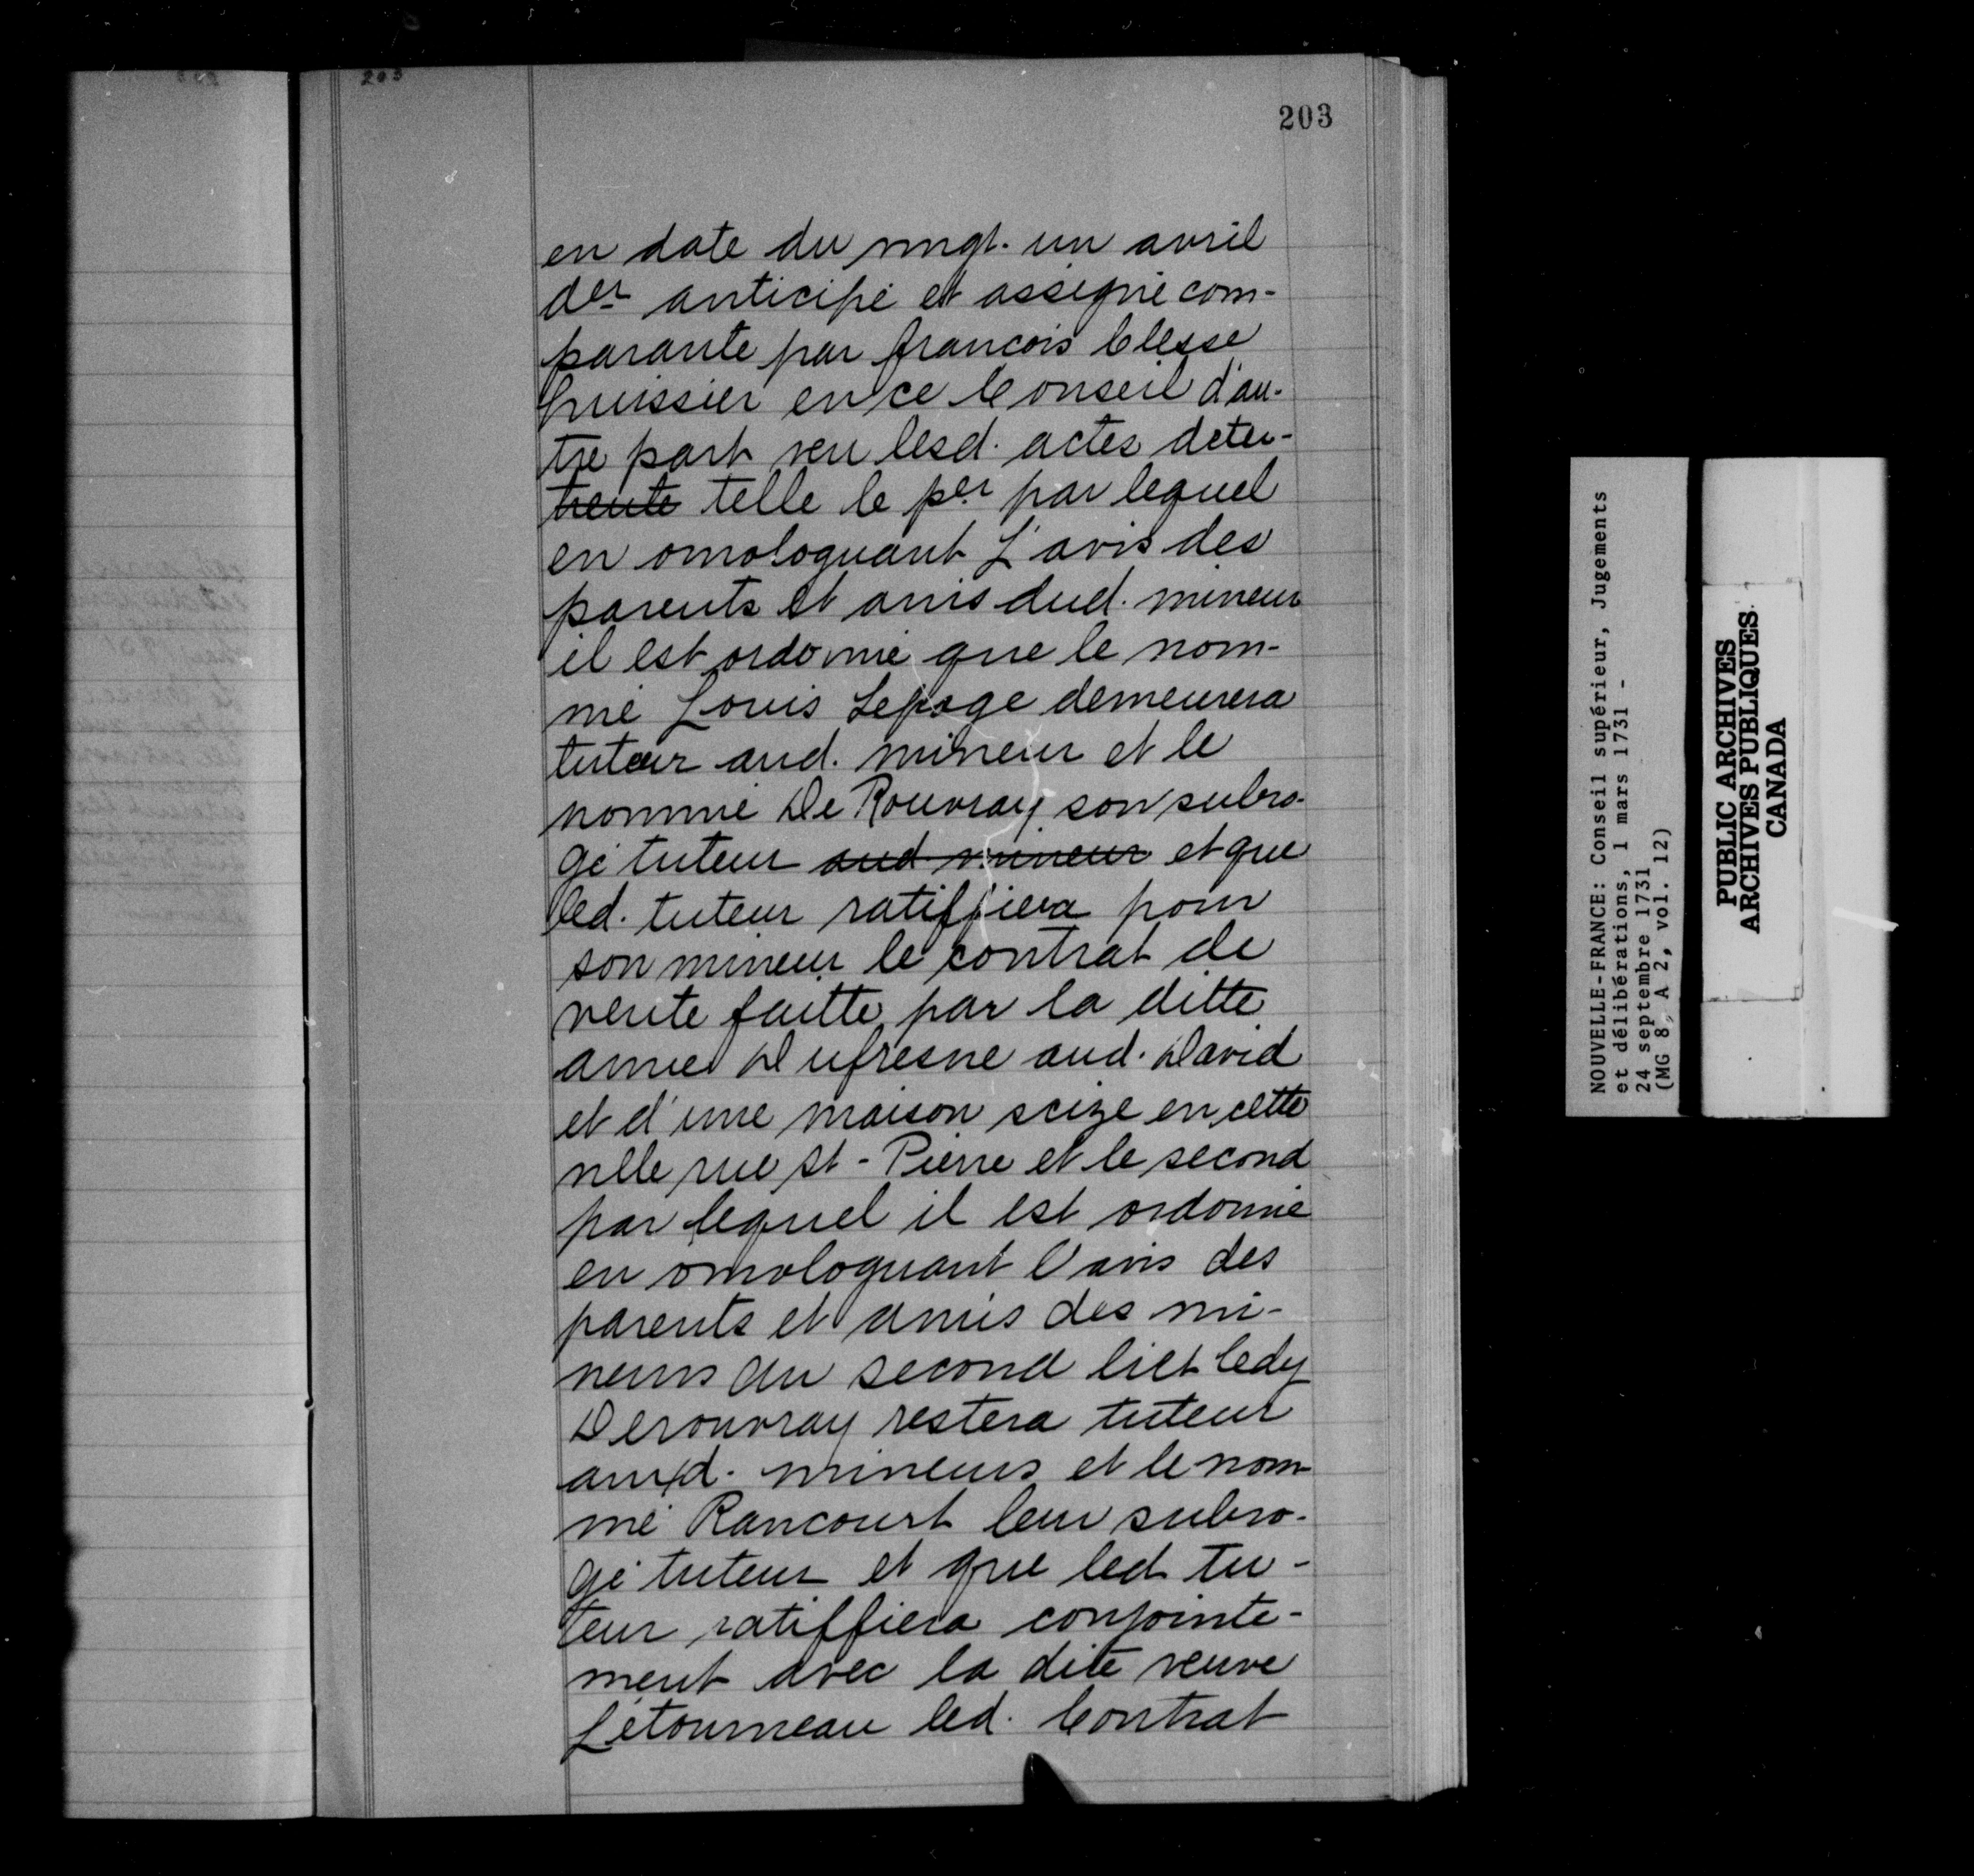 203
203
en date du vingt. un avril
der anticipé et assigné com-
parante par francois Clesse
huissier en ce Conseil d'au-
tre part veu lesd. actes deteu-
trente telle le per par lequel
en omologuant L'avis des
parents et amis dud. mineur
il est ordonné que le nom-
mé Louis Lepage demeurera
tuteur aud. mineur et le
nommé De Rouvray son subro-
gé tuteur aud mineur et que
led. tuteur ratiffiera pour
son mineur le contrat de
vente faitte par la ditte
anne Dufresne aud. David
et d'une maison scize en cette
ville rue St-Pierre et le second
par lequel il est ordonné
en omologuant l'avis des
parents et amis des mi-
neurs du second lict led
Derouvray restera tuteur
auxd. mineurs et le nom
mé Rancourt leur subro-
gé tuteur et que led tu-
teur ratiffiera conjointe-
ment avec la dite veuve
Létourneau led. Contrat
NOUVELLE-FRANCE: Conseil supérieur, Jugements
et délibérations, 1 mars 1731 -
24 septembre 1731
(MG 8, A 2, vol. 12)
PUBLIC ARCHIVES
ARCHIVES PUBLIQUES
CANADA